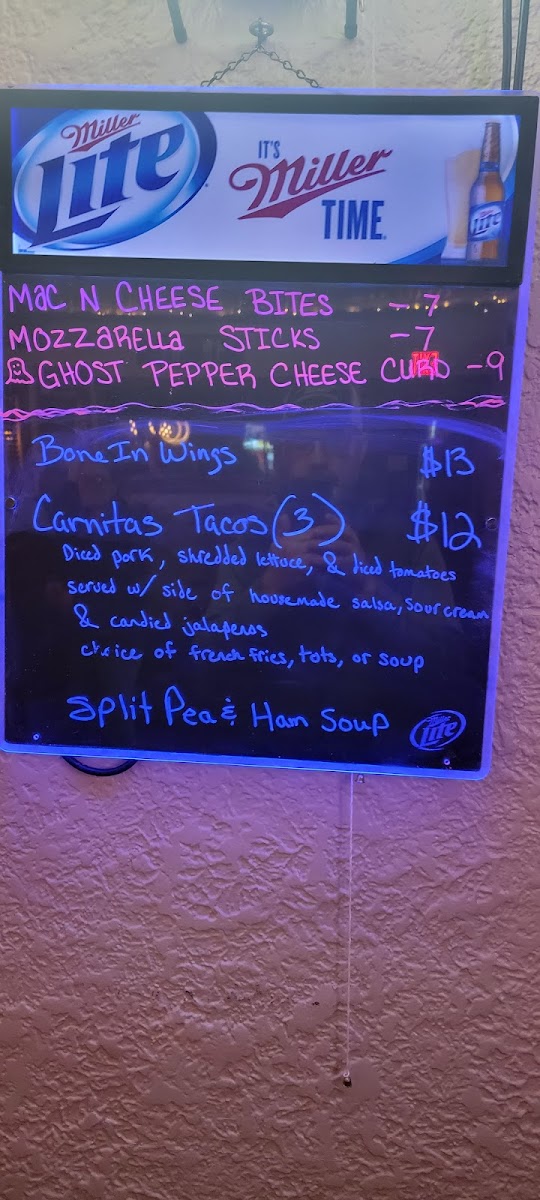 Miller
Lite
IT'S
Miller
TIME.
Lite
MAC N CHEESE BITES - 7
MOZZARELLA STICKS - 7
GHOST PEPPER CHEESE CURD - 9
Bone In Wings $13
Carnitas Tacos (3) $12
Diced pork, shredded lettuce, & diced tomatoes
served w/ side of housemade salsa, sour cream
& candied jalapenos
choice of french fries, tots, or soup
Split Pea & Ham Soup
Miller
Lite